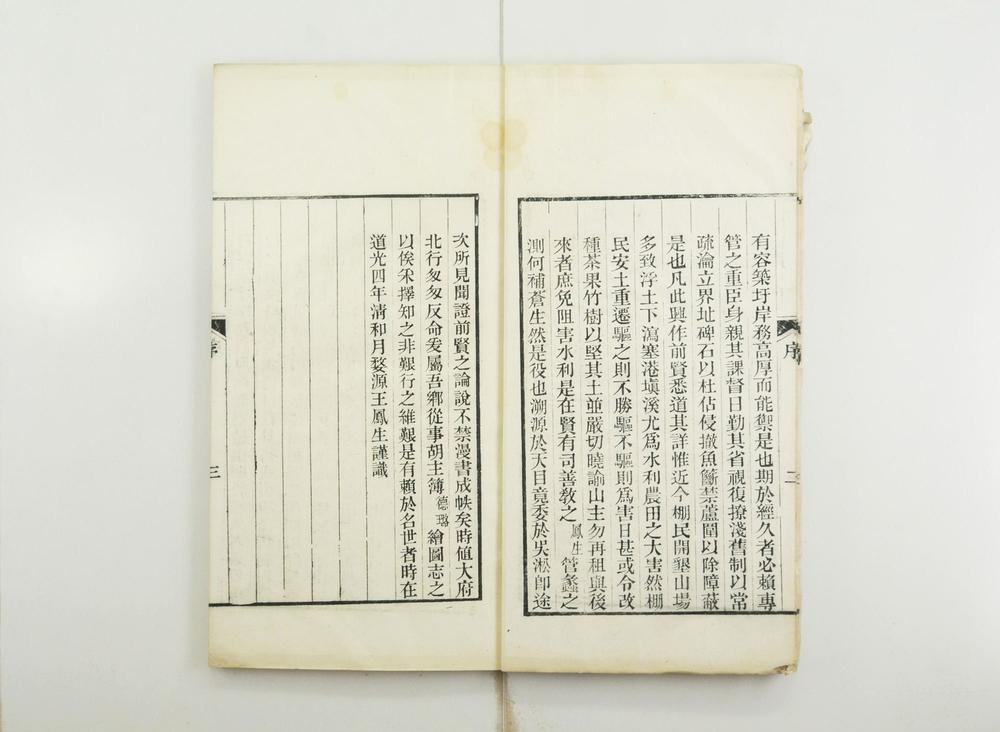 有容築圩岸務高厚而能禦是也期於經久者必賴專
管之重臣身親其課督日勤其省視復撩淺舊制以常
疏瀹立界址碑石以杜佔侵撤魚籪禁蘆圍以除障蔽
是也凡此興作前賢悉道其詳惟近今棚民開墾山場
多致浮土下瀉塞港塡溪尤爲水利農田之大害然棚
民安土重遷驅之則不勝驅不驅則爲害日甚或令改
種茶果竹樹以堅其土並嚴切曉諭山主勿再租與後
來者庶免阻害水利是在賢有司善敎之鳳生管蠡之
測何補蒼生然是役也溯源於天目竟委於吳淞卽途
序
二
次所見聞證前賢之論說不禁漫書成帙矣時値大府
北行匆匆反命爰屬吾鄕從事胡主簿德璐繪圖志之
以俟釆擇知之非艱行之維艱是有賴於名世者時在
道光四年淸和月婺源王鳳生謹識
序
三